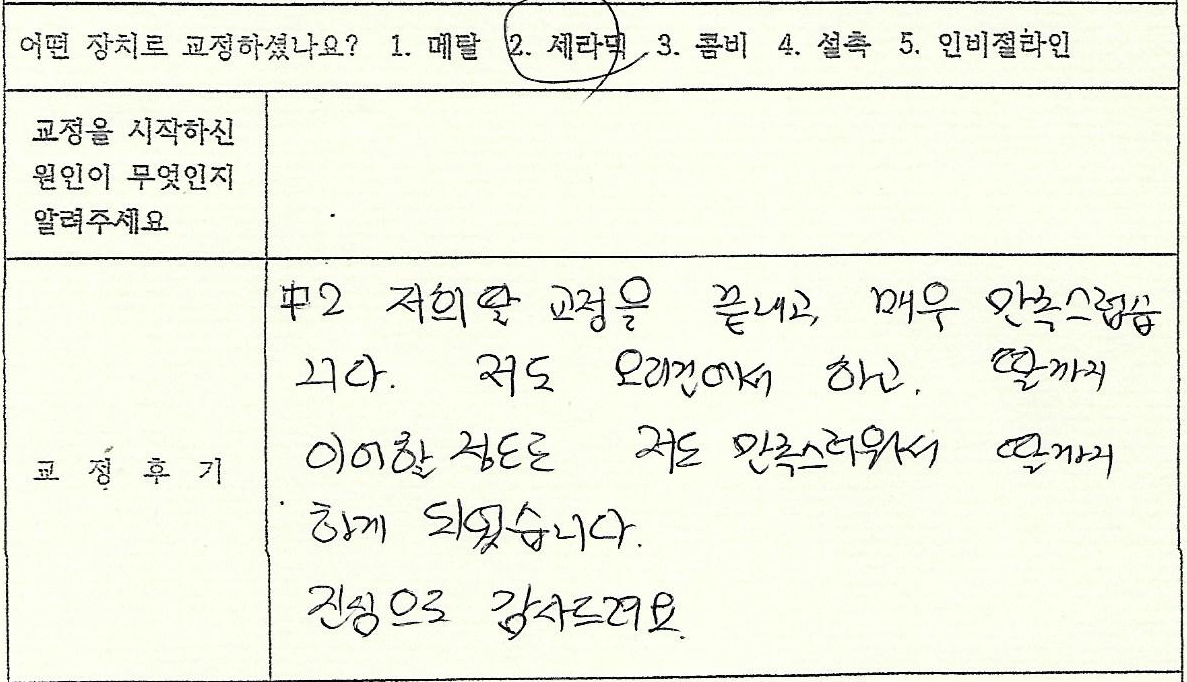 어떤 장치로 교정하셨나요? 1. 메탈 2. 세라믹 3. 콤비 4. 설측 5. 인비절라인
교정을 시작하신
원인이 무엇인지
알려주세요
中2 저희 딸 교정을 끝내고, 매우 만족스럽습
니다. 저도 오리건에서 하고. 딸까지
이어할 정도로 저도 만족스러워서 딸까지
하게 되었습니다.
진심으로 감사드려요.
교 정 후 기